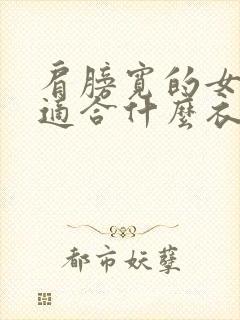 肩膀寬的女
適合什麼衣
都市妖孽